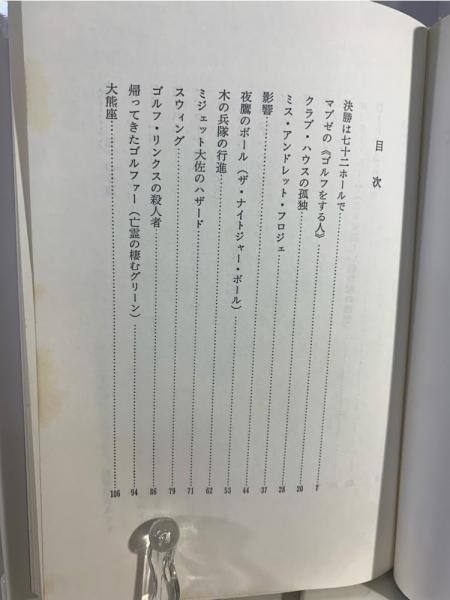 目次
決勝は七十二ホールで
マブゼの《ゴルフをする人》 7
クラブ・ハウスの孤独 20
ミス・アンドレット・フロジェ 28
影響 37
夜鷹のボール(ザ・ナイトジャー・ボール) 44
木の兵隊の行進 53
ミジェット大佐のハザード 62
スウィング 71
ゴルフ・リンクスの殺人者 79
帰ってきたゴルファー(亡霊の棲むグリーン) 86
大熊座 94
106